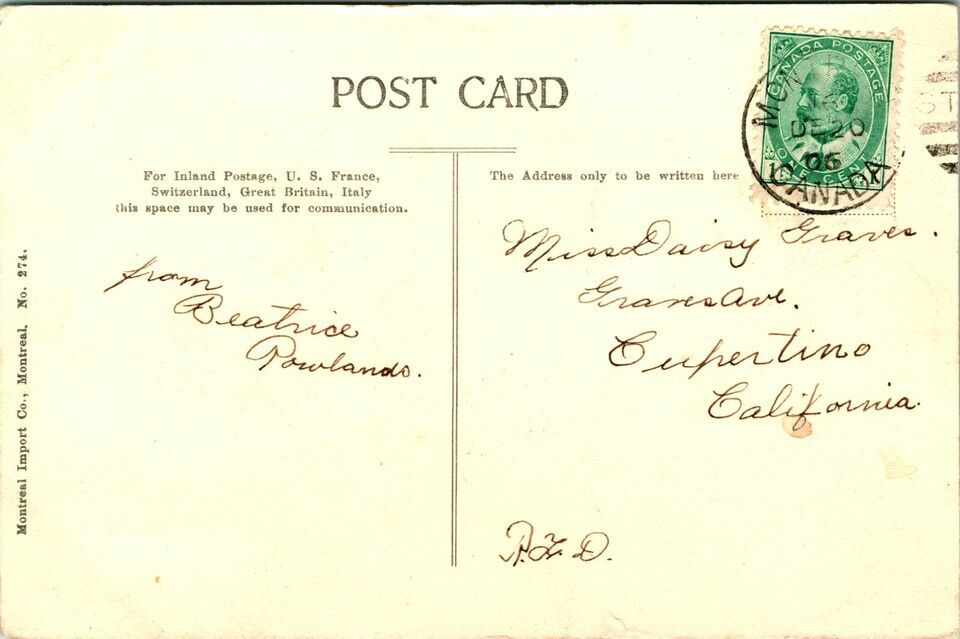 POST CARD
For Inland Postage, U. S. France,
Switzerland, Great Britain, Italy
this space may be used for communication.
The Address only to be written here
CANADA POSTAGE
ONE CENT
DE 20
06
CANADA
from
Beatrice
Rowlands.
Miss Daisy Graves.
Graves Ave.
Cupertino
California.
R.F.D.
Montreal Import Co., Montreal. No. 274.